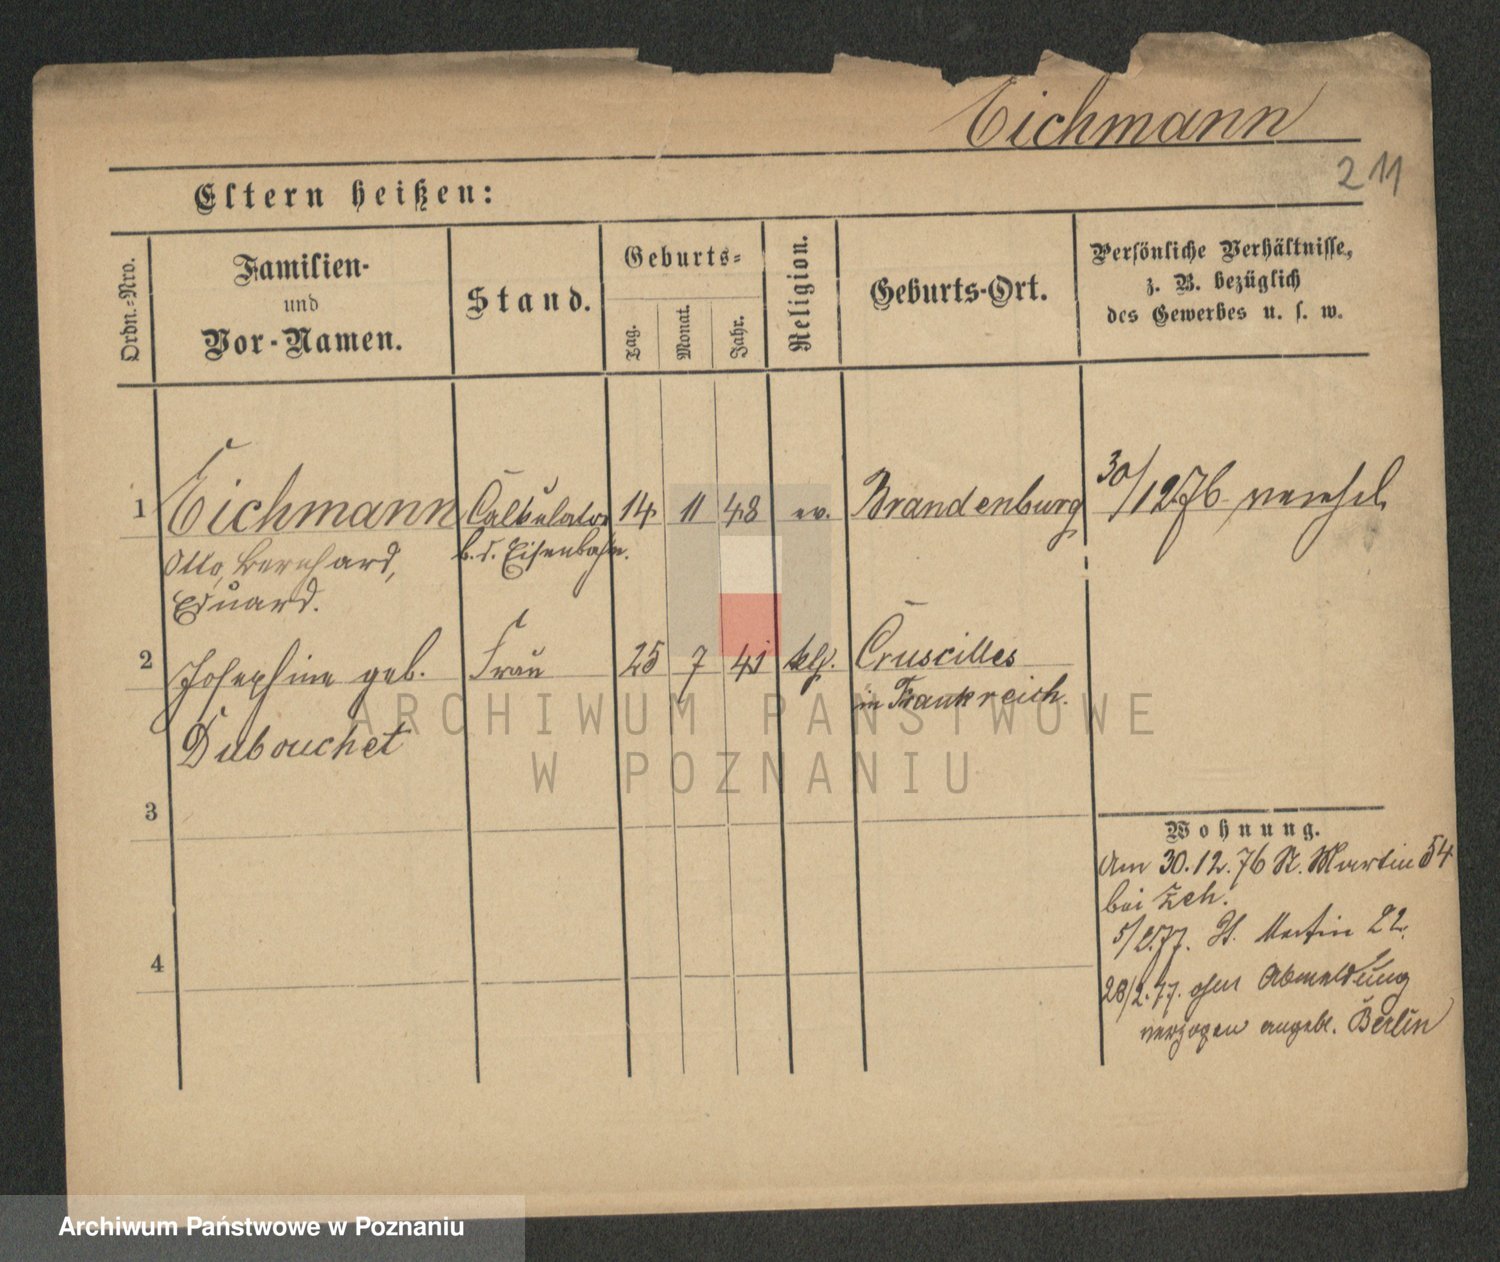 Eichmann
211
Eltern heißen:
Ordn.-Nro.
Familien-
und
Vor-Namen.
Stand.
Geburts-
Tag.
Monat.
Jahr.
Religion.
Geburts-Ort.
Persönliche Verhältnisse,
z. B. bezüglich
des Gewerbes u. s. w.
1 Eichmann Calkulator 14 11 48 ev. Brandenburg 30/12 76
Otto, Bernhard, b. d. Eisenbahn.
Eduard.
2 Josephine geb. Frau 25 7 41 Cruscilles
in Frankreich.
Dubouchet
3
4
Wohnung.
Am 30.12.76 St. Martin 54
bei Zeh.
5/2.77. St. Martin 22.
28/2.77. ohne Abmeldung
verzogen angebl. Berlin
ARCHIWUM PAŃSTWOWE
W POZNANIU
Archiwum Państwowe w Poznaniu